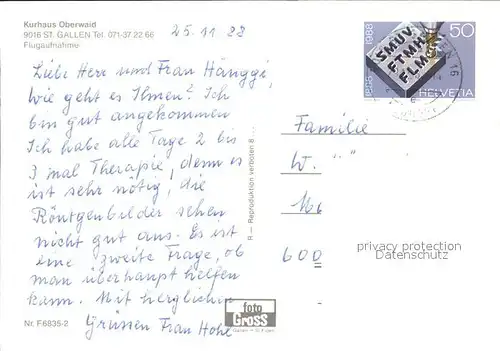 Kurhaus Oberwaid
9016 ST. GALLEN Tel. 071-37 22 66
Flugaufnahme
25.11 88
Liebe Herr und Frau Hänggi,
Wie geht es Ihnen? Ich
bin gut angekommen
Ich habe alle Tage 2 bis
3 mal Therapie, denn es
ist sehr nötig, die
Röntgenbilder sehen
nicht gut aus. Es ist
eine zweite Frage, ob
man überhaupt helfen
kann. Mit herzlichen
Grüssen Frau Hohl
Nr. F6835-2
R — Reproduktion verboten
foto
Gross
1888 1988
50
SMUV
FTMH
FLM
HELVETIA
16
Familie
W. " "
600
privacy protection
Datenschutz